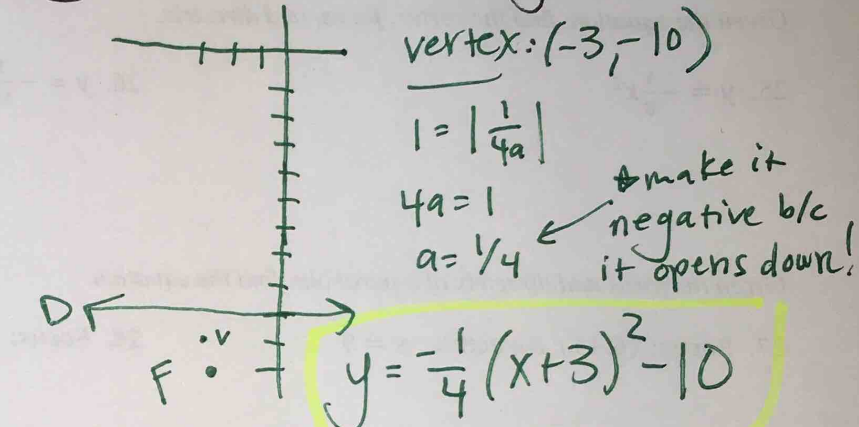 vertex: (-3, -10)
1 = | 1/4a |
4a = 1
a = 1/4
make it
negative b/c
it opens down!
D
V
F
y = -1/4 (x+3)² - 10